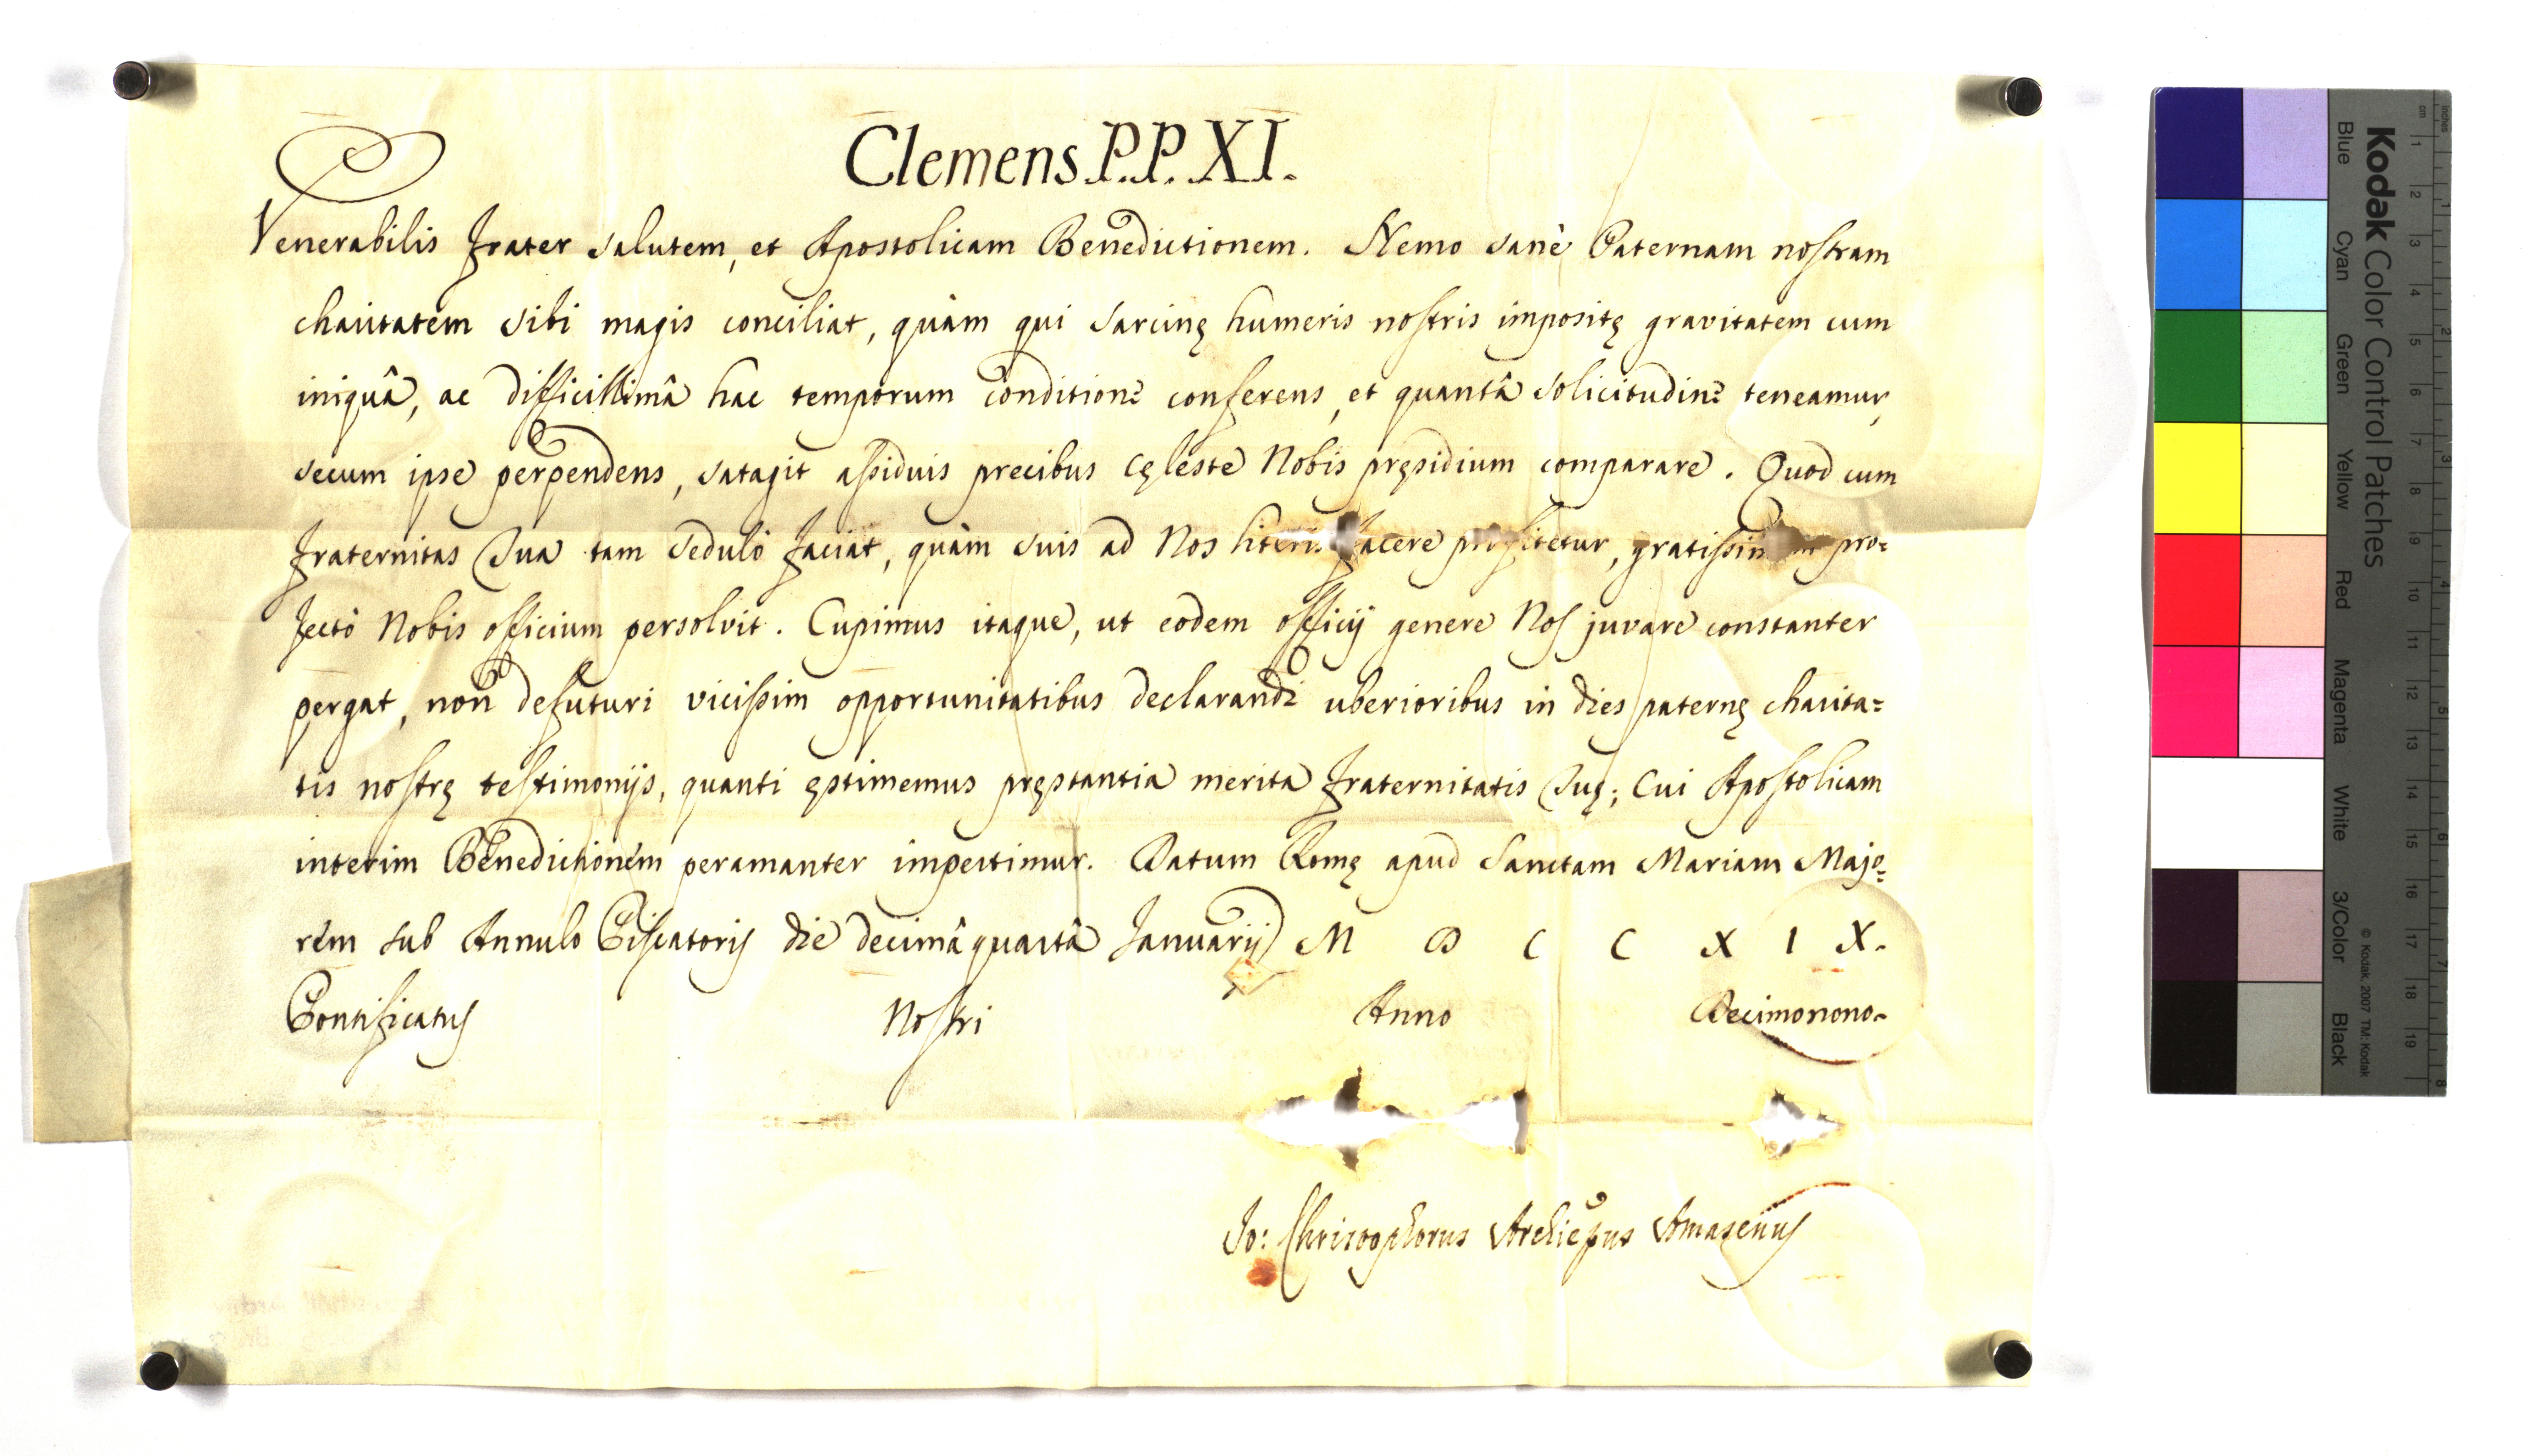 Clemens P.P. XI.
Venerabilis Frater salutem, et Apostolicam Benedictionem. Nemo sanè Paternam nostram
charitatem sibi magis conciliat, quàm qui sarcinę humeris nostris impositę gravitatem cum
iniquâ, ac difficillimâ hac temporum conditione conferens, et quantâ solicitudine teneamur,
secum ipse perpendens, satagit assiduis precibus cęleste Nobis pręsidium comparare. Quod cum
Fraternitas Tua tam sedulò faciat, quàm suis ad Nos literis facere profitetur, gratissimum pro=
fectò Nobis officium persolvit. Cupimus itaque, ut eodem officij genere Nos juvare constanter
pergat, non defuturi vicissim opportunitatibus declarandi uberioribus in dies paternę charita=
tis nostrę testimonijs, quanti ęstimemus pręstantia merita Fraternitatis Tuę; Cui Apostolicam
interim Benedictionem peramanter impertimur. Datum Romę apud Sanctam Mariam Majo=
rem sub Annulo Piscatoris die decimâquartâ Januarij M D C C X I X.
Pontificatus Nostri Anno Decimonono.
Jo: Christophorus Archiepus Amasenus
Kodak Color Control Patches
Blue Cyan Green Yellow Red Magenta White 3/Color Black
© Kodak, 2007 TM: Kodak
inches 1 2 3 4 5 6 7 8
cm 1 2 3 4 5 6 7 8 9 10 11 12 13 14 15 16 17 18 19